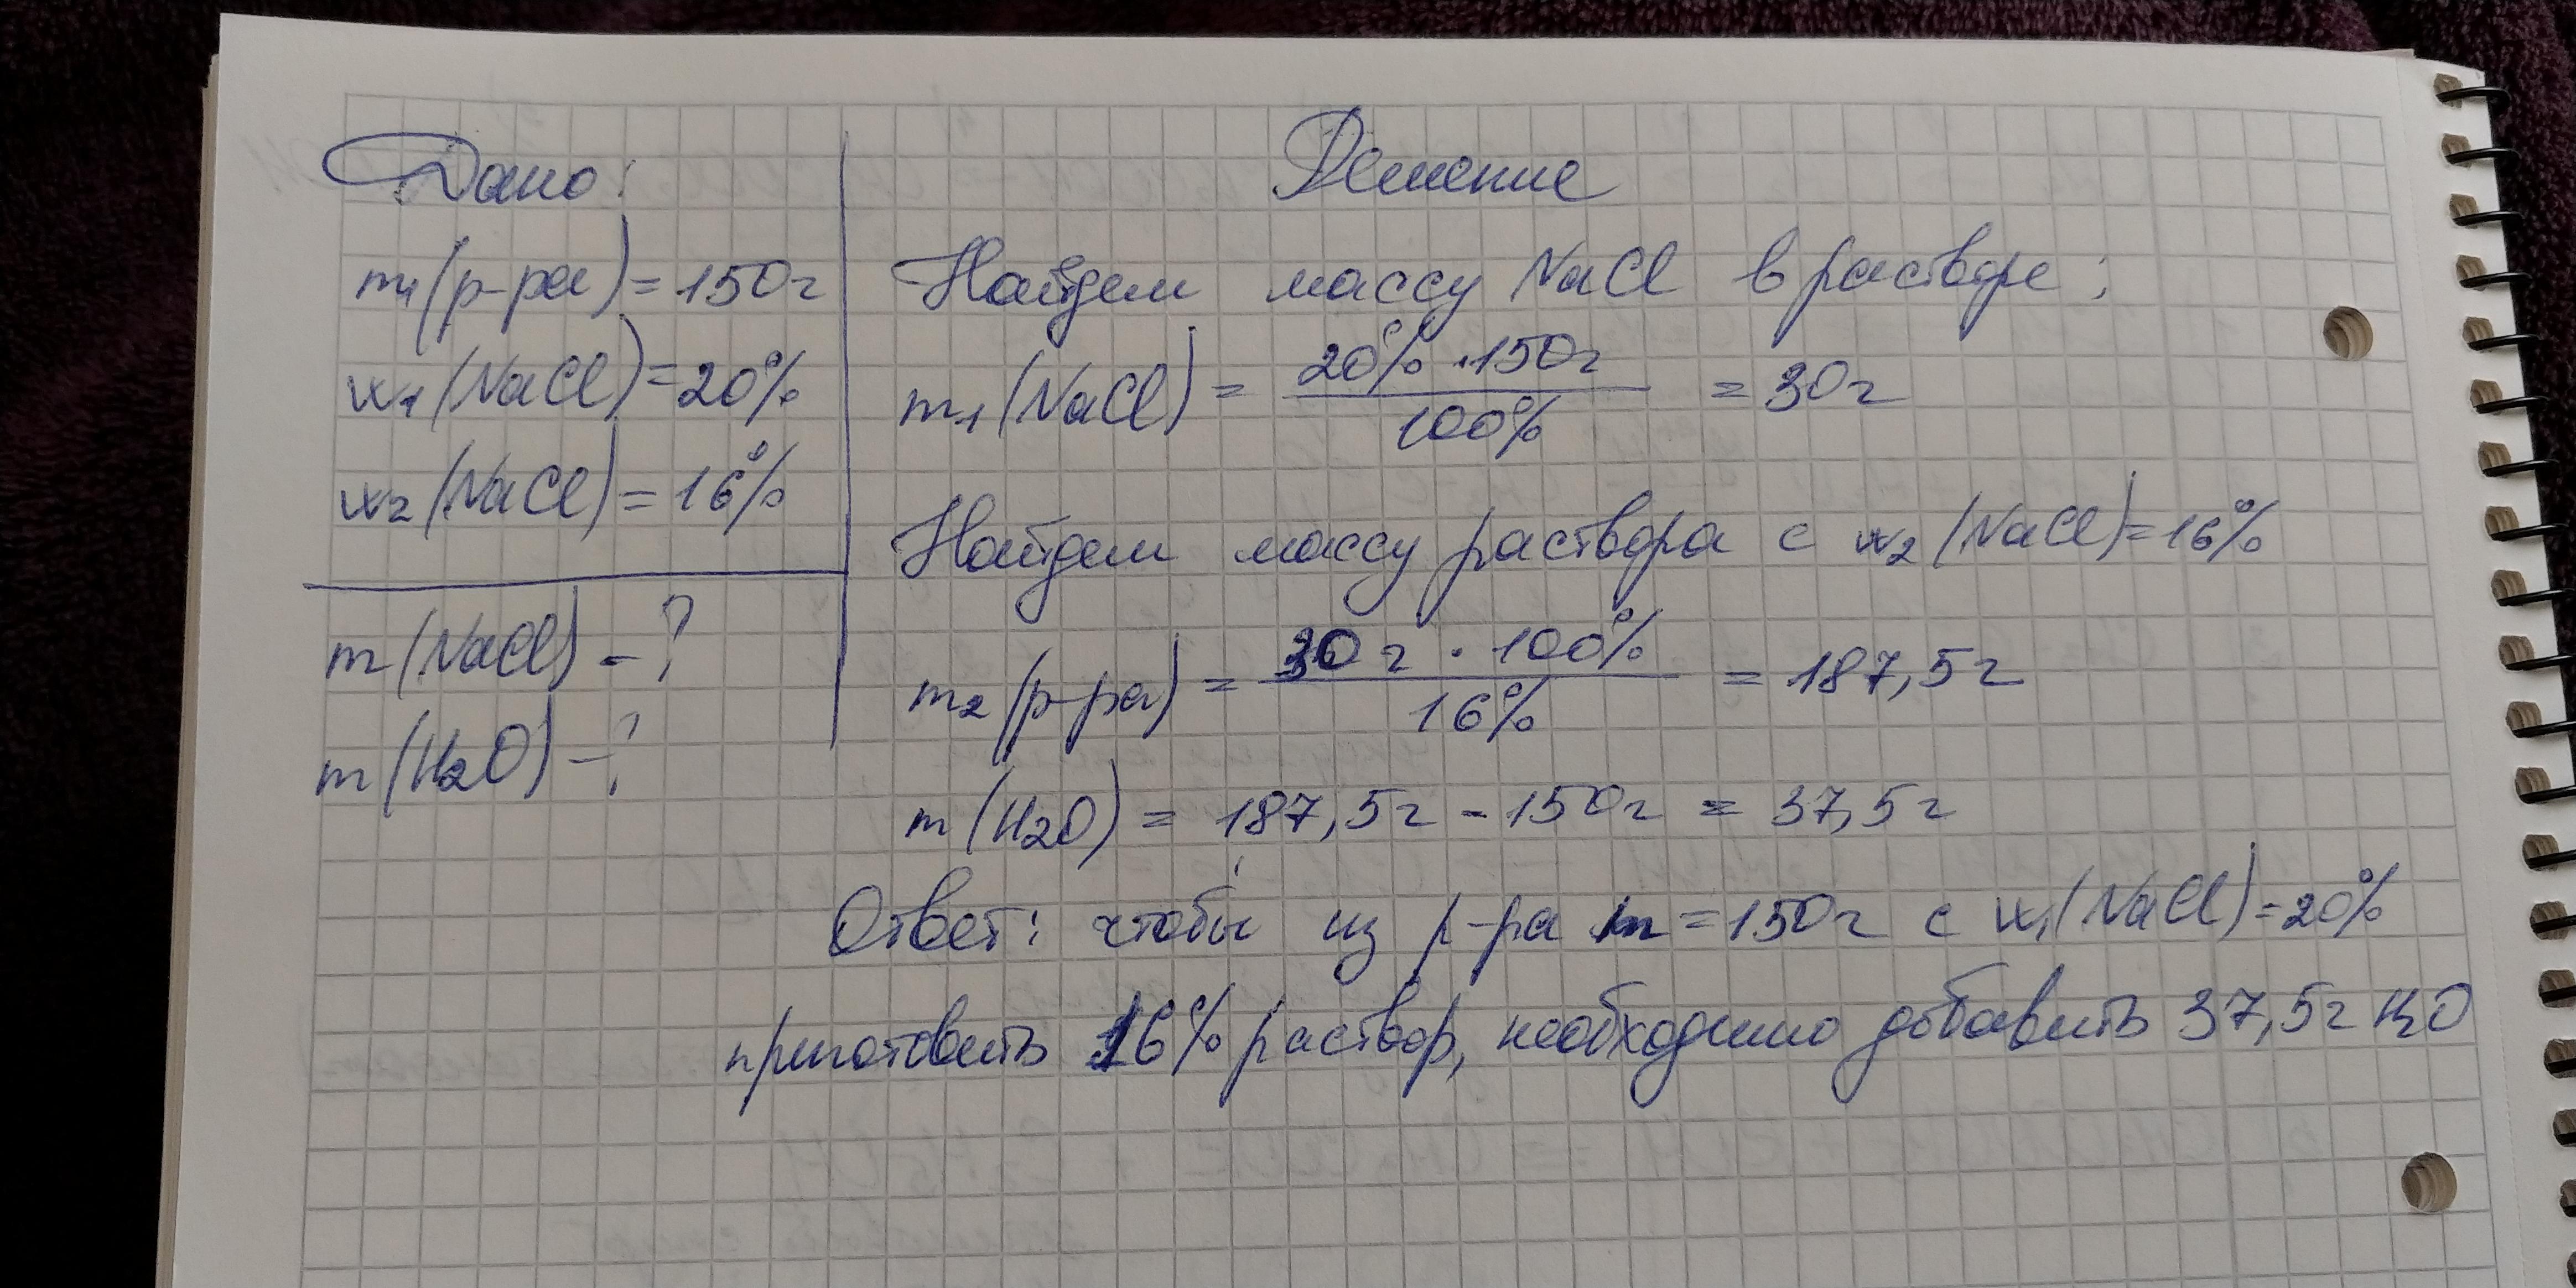 Дано:
m1(р-ра) = 150г
w1(NaCl) = 20%
w2(NaCl) = 16%
m(NaCl) - ?
m(H2O) - ?
Решение
Найдем массу NaCl в растворе:
m1(NaCl) = 20% · 150г / 100% = 30г
Найдем массу раствора с w2(NaCl) = 16%
m2(р-ра) = 30г · 100% / 16% = 187,5г
m(H2O) = 187,5г - 150г = 37,5г
Ответ: чтобы из р-ра m = 150г с w1(NaCl) = 20%
приготовить 16% раствор, необходимо добавить 37,5г H2O